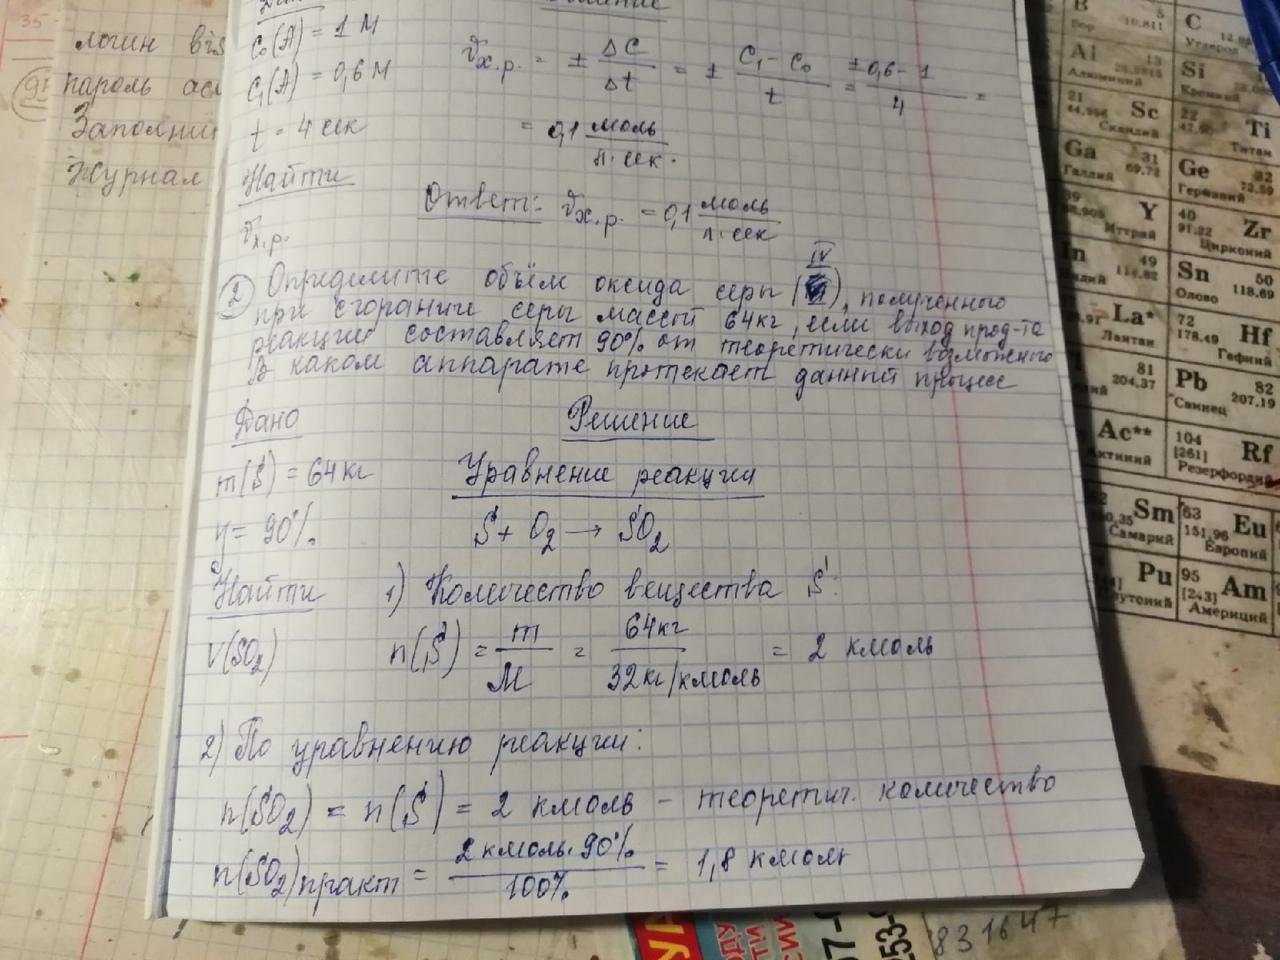 35
логин
пароль
Заполни
Журнал
C₀(A) = 1 М
C₁(A) = 0,6 М
t = 4 сек
Найти
υх.р.
υх.р. = ± ΔC/Δt = ± C₁ - C₀/t = ± 0,6 - 1/4 =
= 0,1 моль/л·сек.
Ответ: υх.р. = 0,1 моль/л·сек
IV
2 Определите объём оксида серы ( ), полученного
при сгорании серы массой 64кг, если выход прод-та
реакции составляет 90% от теоретически возможного
В каком аппарате протекает данный процесс
Дано
Решение
m(S) = 64кг
Уравнение реакции
η = 90%
S + O₂ → SO₂
Найти
V(SO₂)
1) Количество вещества S:
n(S) = m/M = 64кг/32кг/кмоль = 2 кмоль
2) По уравнению реакции:
n(SO₂) = n(S) = 2 кмоль – теоретич. количество
n(SO₂)практ = 2 кмоль·90%/100% = 1,8 кмоль
B 5
Бор 10,811
C
Углерод
Al 13
Алюминий
Si
Кремний
21
44,956 Sc
Скандий
22
Ti
Титан
Ga 31
Галлий 69,72
Ge 32
Германий 72,59
39
Y
Иттрий
40
91,22 Zr
Цирконий
In 49
114,82
Sn 50
Олово 118,69
La*
Лантан
72
178,49 Hf
Гафний
81
204,37
Pb 82
Свинец 207,19
Ac**
Актиний
104
[261] Rf
Резерфордий
Sm
Самарий
63
151,96 Eu
Европий
Pu
95
[243] Am
Америций
831647